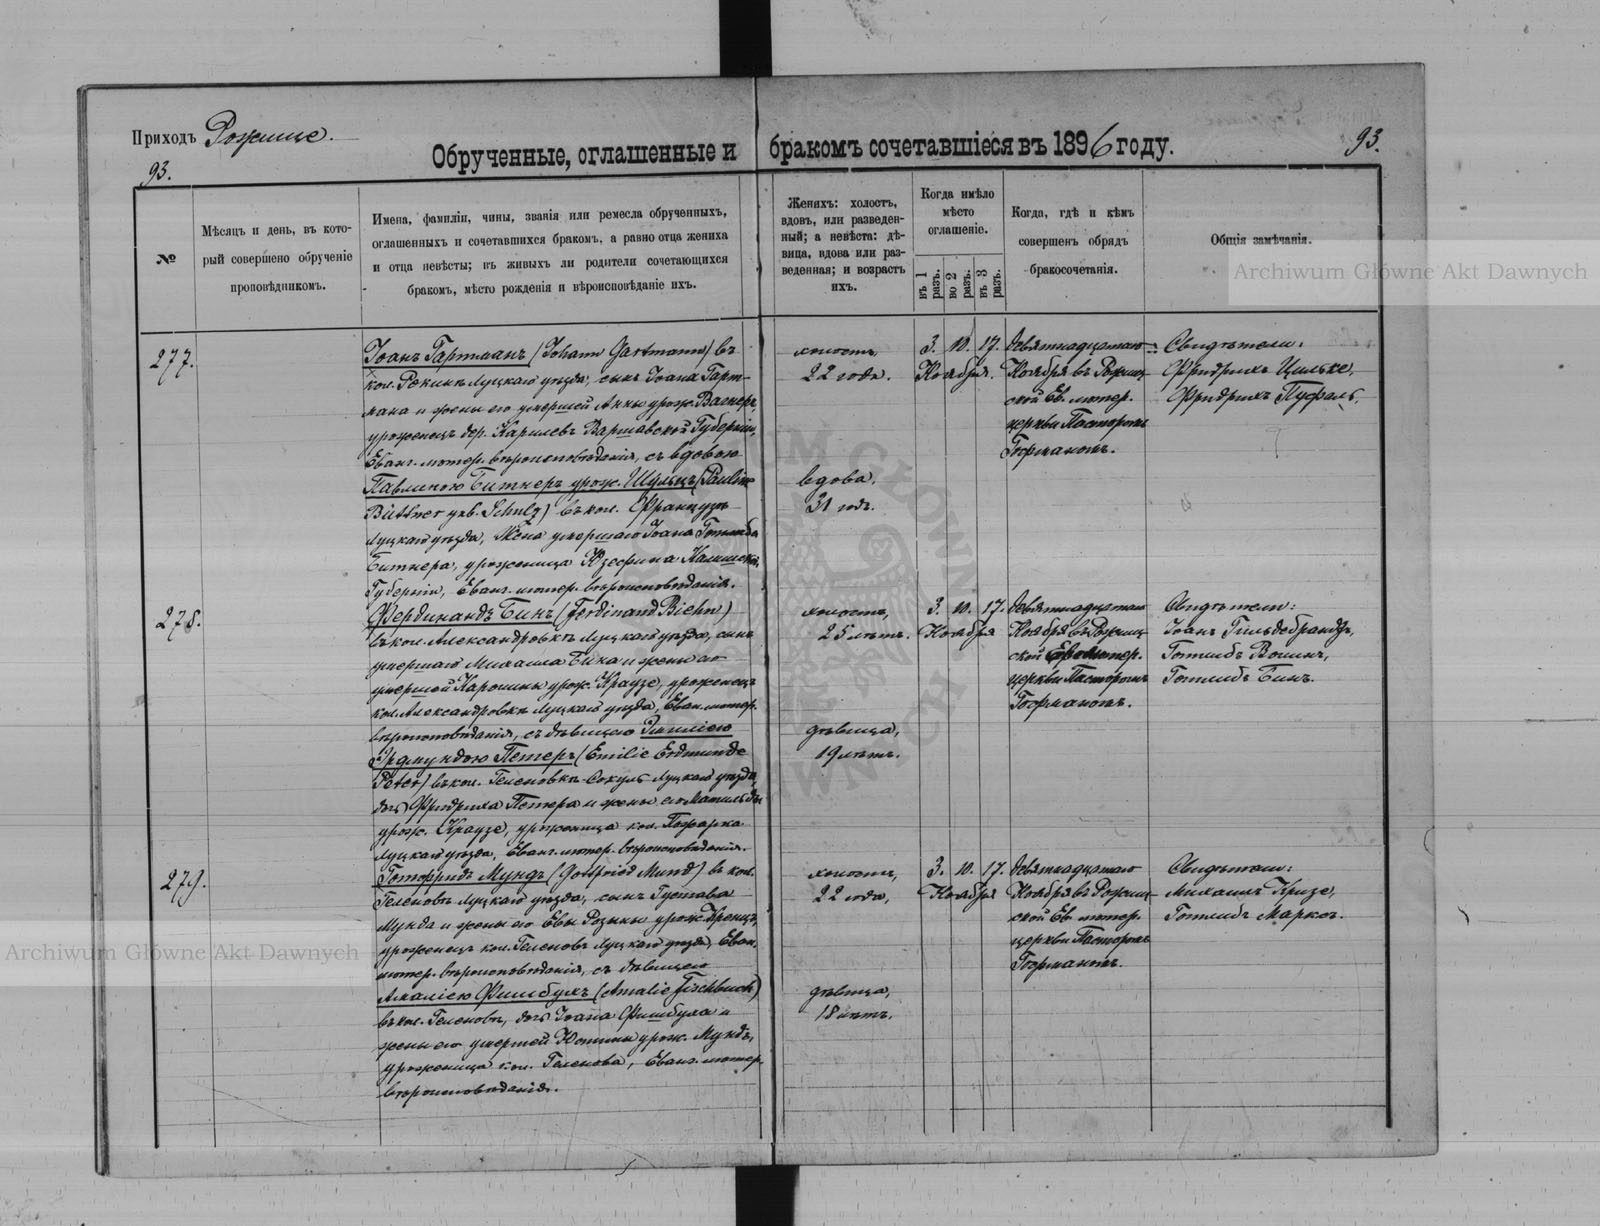 Приходъ Рожище.
93.
Обрученные, оглашенные и бракомъ сочетавшіеся въ 1896 году.
93.
№
Мѣсяцъ и день, въ кото-
рый совершено обрученіе
проповѣдникомъ.
Имена, фамиліи, чины, званія или ремесла обрученныхъ,
оглашенныхъ и сочетавшихся бракомъ, а равно отца жениха
и отца невѣсты; въ живыхъ ли родители сочетающихся
бракомъ, мѣсто рожденія и вѣроисповѣданіе ихъ.
Женихъ: холостъ,
вдовъ, или разведен-
ный; а невѣста: дѣ-
вица, вдова или раз-
веденная; и возрастъ
ихъ.
Когда имѣло
мѣсто
оглашеніе.
въ 1 разъ.
во 2 разъ.
въ 3 разъ.
Когда, гдѣ и кѣмъ
совершенъ обрядъ
бракосочетанія.
Общія замѣчанія.
277.
Іоанъ Гартманъ (Johann Gartmann) въ
кол. Рекинь Луцкаго уѣзда, сынъ Іоана Гарт-
мана и жены его умершей Анны урож. Вагнеръ,
уроженецъ дер. Варшавской Губерніи,
Еванг. лютер. вѣроисповѣданія, съ вдовою
Павлиною Битнеръ урож. Шульцъ (Pauline
Büttner геб. Schulz) въ кол.
Луцкаго уѣзда, Жена умершаго Іоана Готлиба
Битнера, уроженица Юзефина Калишской
Губерніи, Еванг. лютер. вѣроисповѣданія.
холостъ,
22 года.
вдова,
31 годъ.
3. 10. 17.
Ноября.
девятнадцатаго
Ноября въ Рожищ-
ской Ев. лютер.
церкви Пасторомъ
Гофманомъ.
Свидѣтели:
Фридрихъ Цильке,
Фридрихъ Пуфаль.
278.
Фердинандъ Бинъ (Ferdinand Biehn)
въ кол. Александровкѣ Луцкаго уѣзда, сынъ
умершаго Михаила Бина и жены его
умершей Каролины урож. Краузе, уроженецъ
кол. Александровкѣ Луцкаго уѣзда, Еван. лютер.
вѣроисповѣданія, съ дѣвицею Эмиліею
Эрдмундою Петеръ (Emilie Erdmunde
Peter) въ кол. Геленовкѣ-Сокуль Луцкаго уѣзда,
дочь Фридриха Петера и жены его Матильды
урож. Краузе, уроженица кол.
Луцкаго уѣзда, Еванг. лютер. вѣроисповѣданія.
холостъ,
25 лѣтъ.
дѣвица,
19 лѣтъ.
3. 10. 17.
Ноября
девятнадцатаго
Ноября въ Рожищ-
ской Ев. лютер.
церкви Пасторомъ
Гофманомъ.
Свидѣтели:
Іоанъ Гильдебрандъ,
Готлибъ
Готлибъ Бинъ.
279.
Готфридъ Мундъ (Gottfried Mund) въ кол.
Геленовъ Луцкаго уѣзда, сынъ Густава
Мунда и жены его Евы Розины урож.
уроженецъ кол. Геленовъ Луцкаго уѣзда, Еван.
лютер. вѣроисповѣданія, съ дѣвицею
Амаліею Фишбухъ (Amalie Fischbuch)
въ кол. Геленовъ, дочь Іоана Фишбуха и
жены его умершей Юстины урож. Мундъ,
уроженица кол. Геленова, Еванг. лютер.
вѣроисповѣданія.
холостъ,
22 года,
дѣвица,
18 лѣтъ.
3. 10. 17.
Ноября
девятнадцатаго
Ноября въ Рожищ-
ской Ев. лютер.
церкви Пасторомъ
Гофманомъ.
Свидѣтели:
Михаилъ Кризе,
Готлибъ Марксъ.
Archiwum Główne Akt Dawnych
Archiwum Główne Akt Dawnych